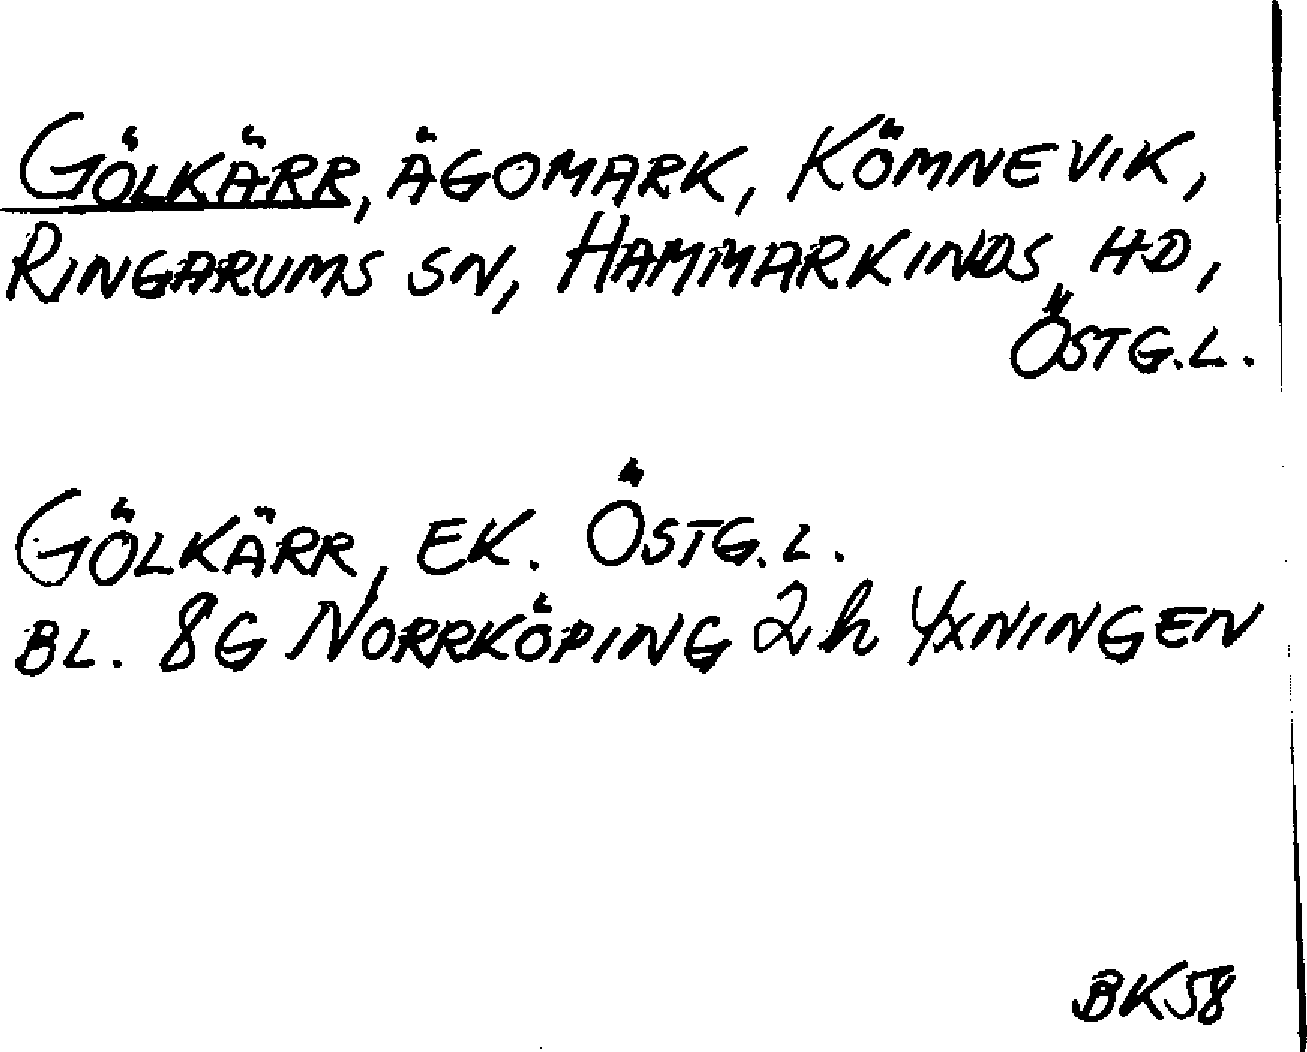 GÖLKÄRR, ÄGOMARK, KÖMNEVIK,
RINGARUMS SN, HAMMARKINDS HD,
ÖSTG.L.
GÖLKÄRR, EK. ÖSTG.L.
BL. 8G NORRKÖPING 2h YXNINGEN
BK58